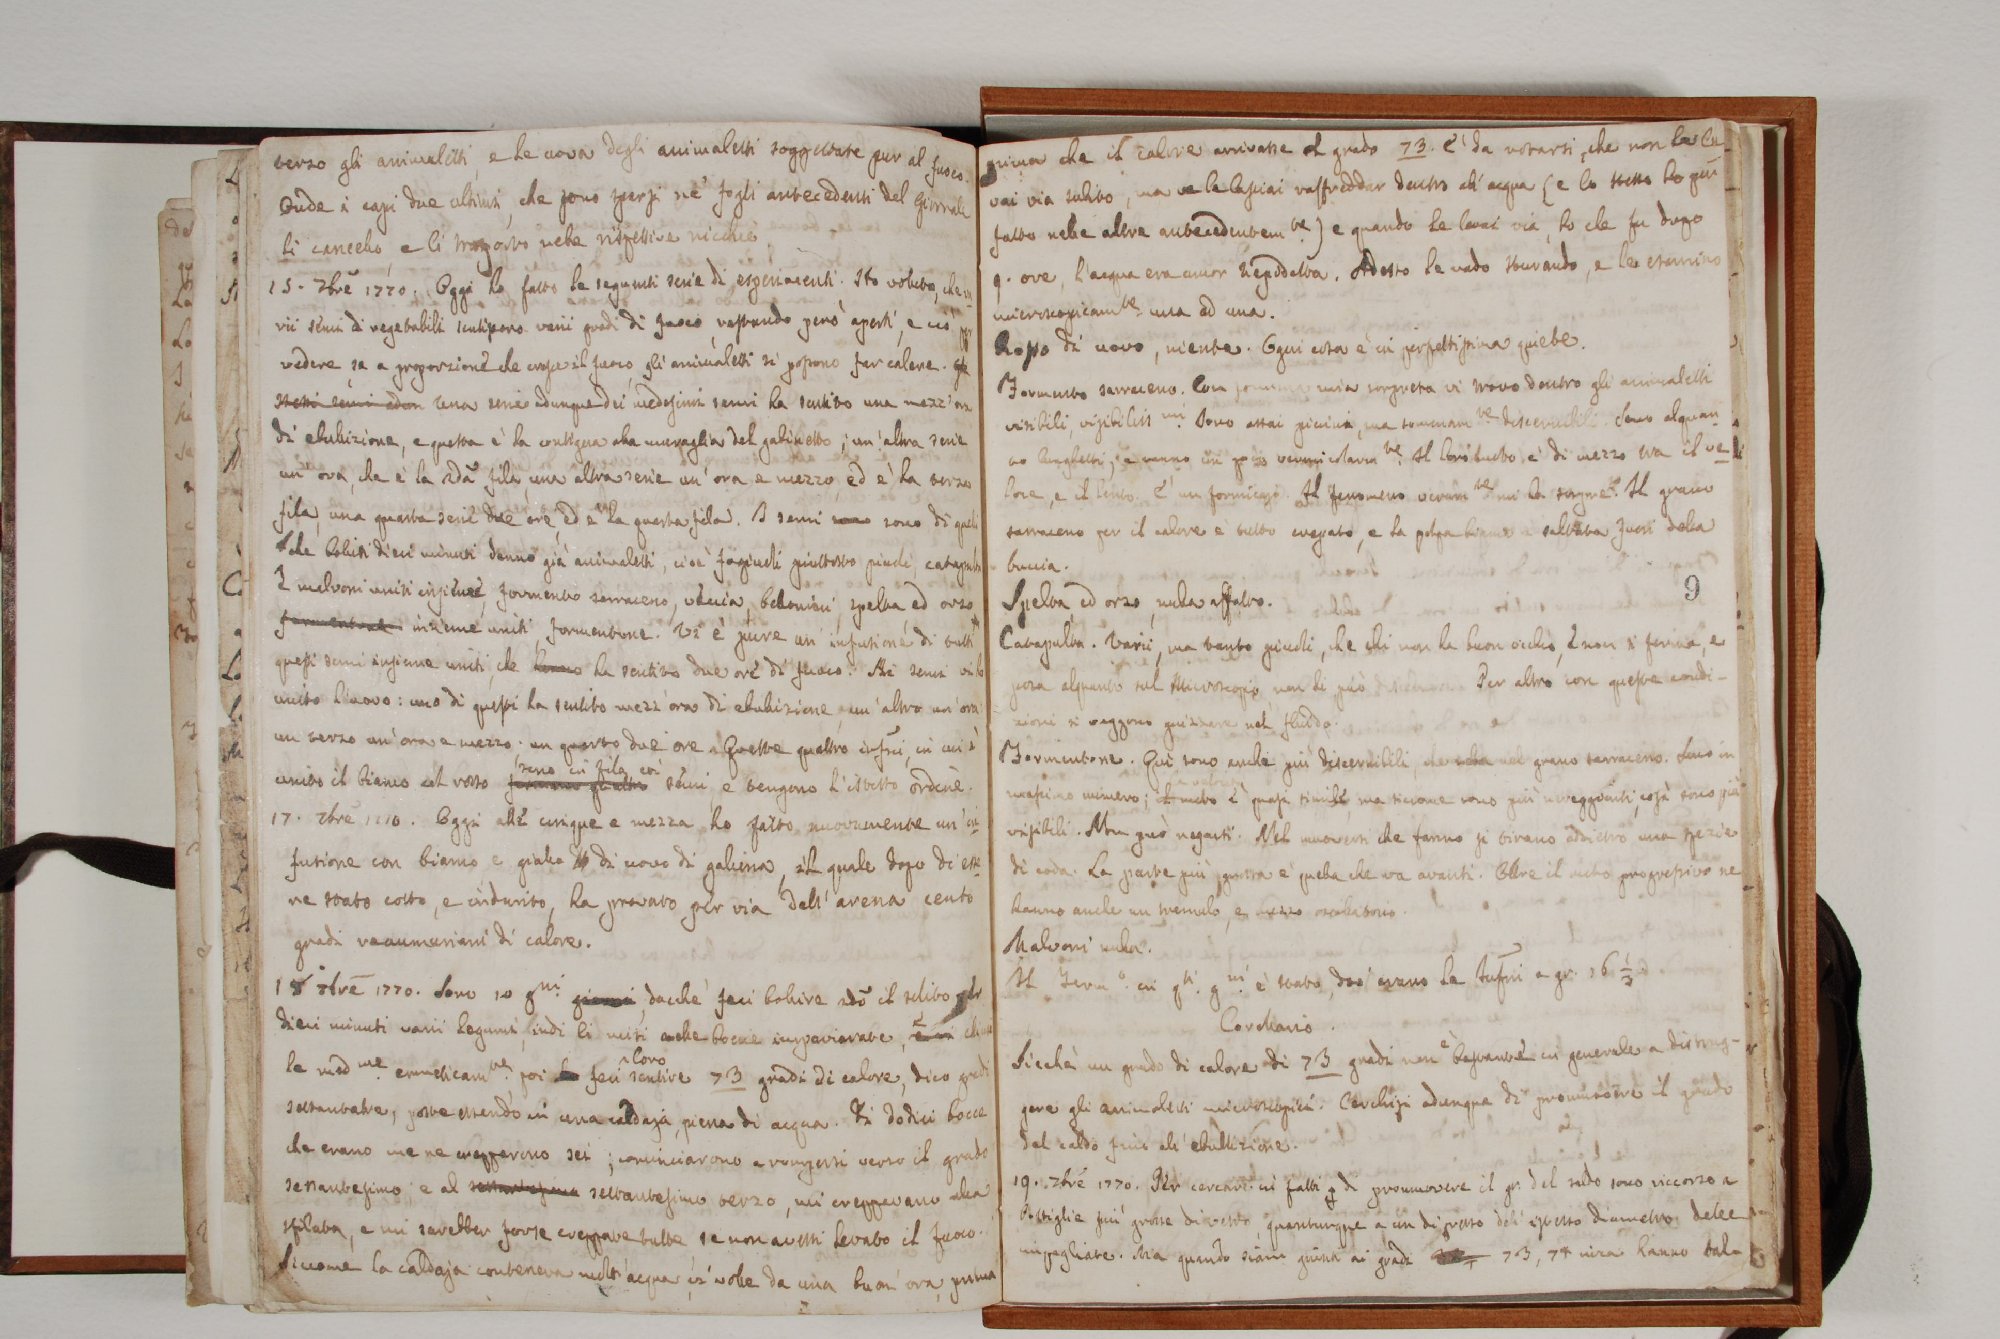 verso gli animaletti, e le uova degli animaletti soggettate pur al fuoco.
Onde i capi due ultimi, che sono sparsi ne' fogli antecedenti del Giornale
li cancello, e li trasporto nelle rispettive nicchie.
15. 7bre 1770. Oggi ho fatto le seguenti serie di esperimenti. Ho voluto, che va
rii semi di vegetabili sentissero varii gradi di fuoco, restando però aperti, e ciò per
vedere se a proporzione che cresce il fuoco gli animaletti si possono far calare.
stessi semi Una serie adunque dei medesimi semi ha sentito una mezz'ora
di ebulizione, e questa è la contigua alla muraglia del gabinetto; un'altra serie
un'ora, che è la 2da fila, una altra serie un'ora e mezzo, ed è la terza
fila, una quarta serie due ore, ed è la quarta fila. I semi sono di quelli
che boliti dieci minuti danno già animaletti, cioè fagiuoli piuttosto piccoli, catapulta
e malvoni uniti insieme, formento sarraceno, veccia, spelta ed orzo
insieme uniti, formentone. Vi è pure un infusione di tutti
questi semi insieme uniti, che ha sentito due ore di fuoco. Ai semi vi ho
unito l'uovo: uno di questi ha sentito mezz'ora di ebulizione, un'altro un'ora
un terzo un'ora e mezzo, un quarto due ore. Queste quattro infusni, in cui è
unito il bianco col rosso sono in fila coi semi, e tengono l'istesso ordine.
17. 7bre 1770. Oggi alle cinque e mezza ho fatto nuovamente un'in
fusione con bianco e giallo di uovo di gallina, il quale dopo di esse
re stato cotto, e indurito, ha provato per via dell'arena cento
gradi reaumuriani di calore.
18 7bre 1770. Sono 10 gni giorni, dacchè feci bollire 2do il solito per
dieci minuti varii legumi, indi li misi nelle bocce impaviarate, e chiu
le medme ermeticamte, poi feci loro sentire 73 gradi di calore, dico gradi
settantatre, poste essendo in una caldaja, piena di acqua. Di dodici bocce
che erano me ne crepparono sei; cominciarono a rompersi verso il grado
sessantesimo e al settantesimo settantesimo terzo, mi creppavano alla
sfilata, e mi sarebber forse creppate tutte se non avessi levato il fuoco.
Siccome la caldaja conteneva molt'acqua, vi volle da una buon'ora, prima
prima che il calore arrivasse al grado 73. E' da notarsi, che non le le
vai via subito, ma ve le lasciai raffreddar dentro all'acqua (e lo stesso ho pur
fatto nelle altre antecedentemte) e quando le levai via, lo che fu dopo
9. ore, l'acqua era ancor tiepidetta. Adesso le vado sturando, e le esamino
microscopicamte una ad una.
Rosso di uovo, niente. Ogni cosa è in perfettissima quiete.
Formento sarraceno. Con somma mia sorpresa vi trovo dentro gli animaletti
visibili, visibilissmi. Sono assai piccini, ma sommamte discernibili. Sono alquan
to lunghetti, e vanno un poco vermicolarmte. Il loro moto è di mezzo tra il ve
loce, e il lento. E' un formicajo. Il fenomeno veramte mi ha sorpreso. Il grano
sarraceno per il calore è tutto crepato, e la polpa bianca è saltata fuori della
buccia.
Spelta, ed orzo, nulla affatto.
9
Catapulta. Varii, ma tanto piccoli, che chi non ha buon occhio, e non si ferma, e
posa alquanto sul Microscopio non li può discernere. Per altro con queste condi-
zioni si veggono guizzare nel fluido.
Formentone. Qui sono anche più discernibili, che nel grano sarraceno. Sono in
massimo numero; il moto è quasi simile, ma siccome sono più grossi, così sono più
visibili. Non può negarsi. Nel muoversi che fanno si tirano addietro una spezie
di coda. La parte più grossa è quella che va avanti. Oltre il moto progressivo ne
hanno anche un tremulo, e mezzo oscillatorio.
Malvoni nulla.
Il Termo. in qti. gni è stato, dov'erano le Infusni a gr. 16 1/3
Corollario.
Sicchè un grado di calore di 73 gradi non è bastante in generale a distrug-
gere gli animaletti microscopici. Cerchisi adunque di promuovere il grado
del caldo fino all'ebullizione.
19. 7bre 1770. Per cercare in fatti di promuovere il gr. del caldo sono riccorso a
bottiglie più grosse di vetro, quantunque a un di presso dell'istesso diametro delle
impagliate. Ma quando siam giunti ai gradi 73, 74 circa hanno tal-